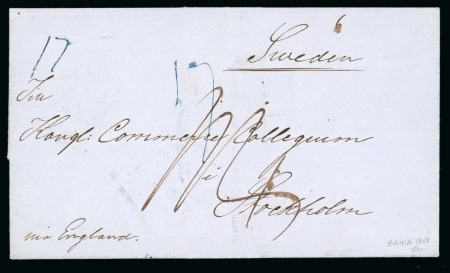 6
Sweden
17
17
Till
Kongl: Commerce Collegium
i
Stockholm
via England.
BAHIA 1858